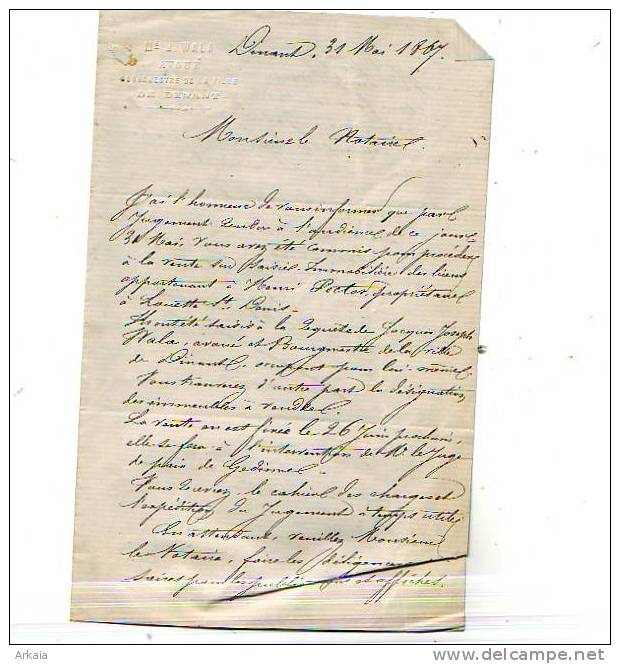 Me J. WALA
AVOUÉ
BOURGMESTRE DE LA VILLE
DE DINANT
Dinant, 31 Mai 1867.
Monsieur le Notaire
J'ai l'honneur de vous informer que par
Jugement rendu à l'audience de ce jour
31 Mai, vous avez été commis pour procéder
à la vente sur Saisie Immobilière des biens
appartenant à Henri Poctor, propriétaire
à Louette St Denis.
Ils ont été saisis à la requête de Jacques Joseph
Wala, avoué et Bourgmestre de la ville
de Dinant, occupant pour lui-même.
Vous trouverez d'autre part la désignation
des immeubles à vendre.
La vente en est fixée le 26 Juin prochain,
elle se fera à l'intervention de Mr le Juge
de paix de Gedinne.
Vous recevrez le cahier des charges et
l'expédition du Jugement à temps utile
En attendant, veuillez, Monsieur
le Notaire, faire les diligences
pour les et affiches.
Arkaia
delcampe.net